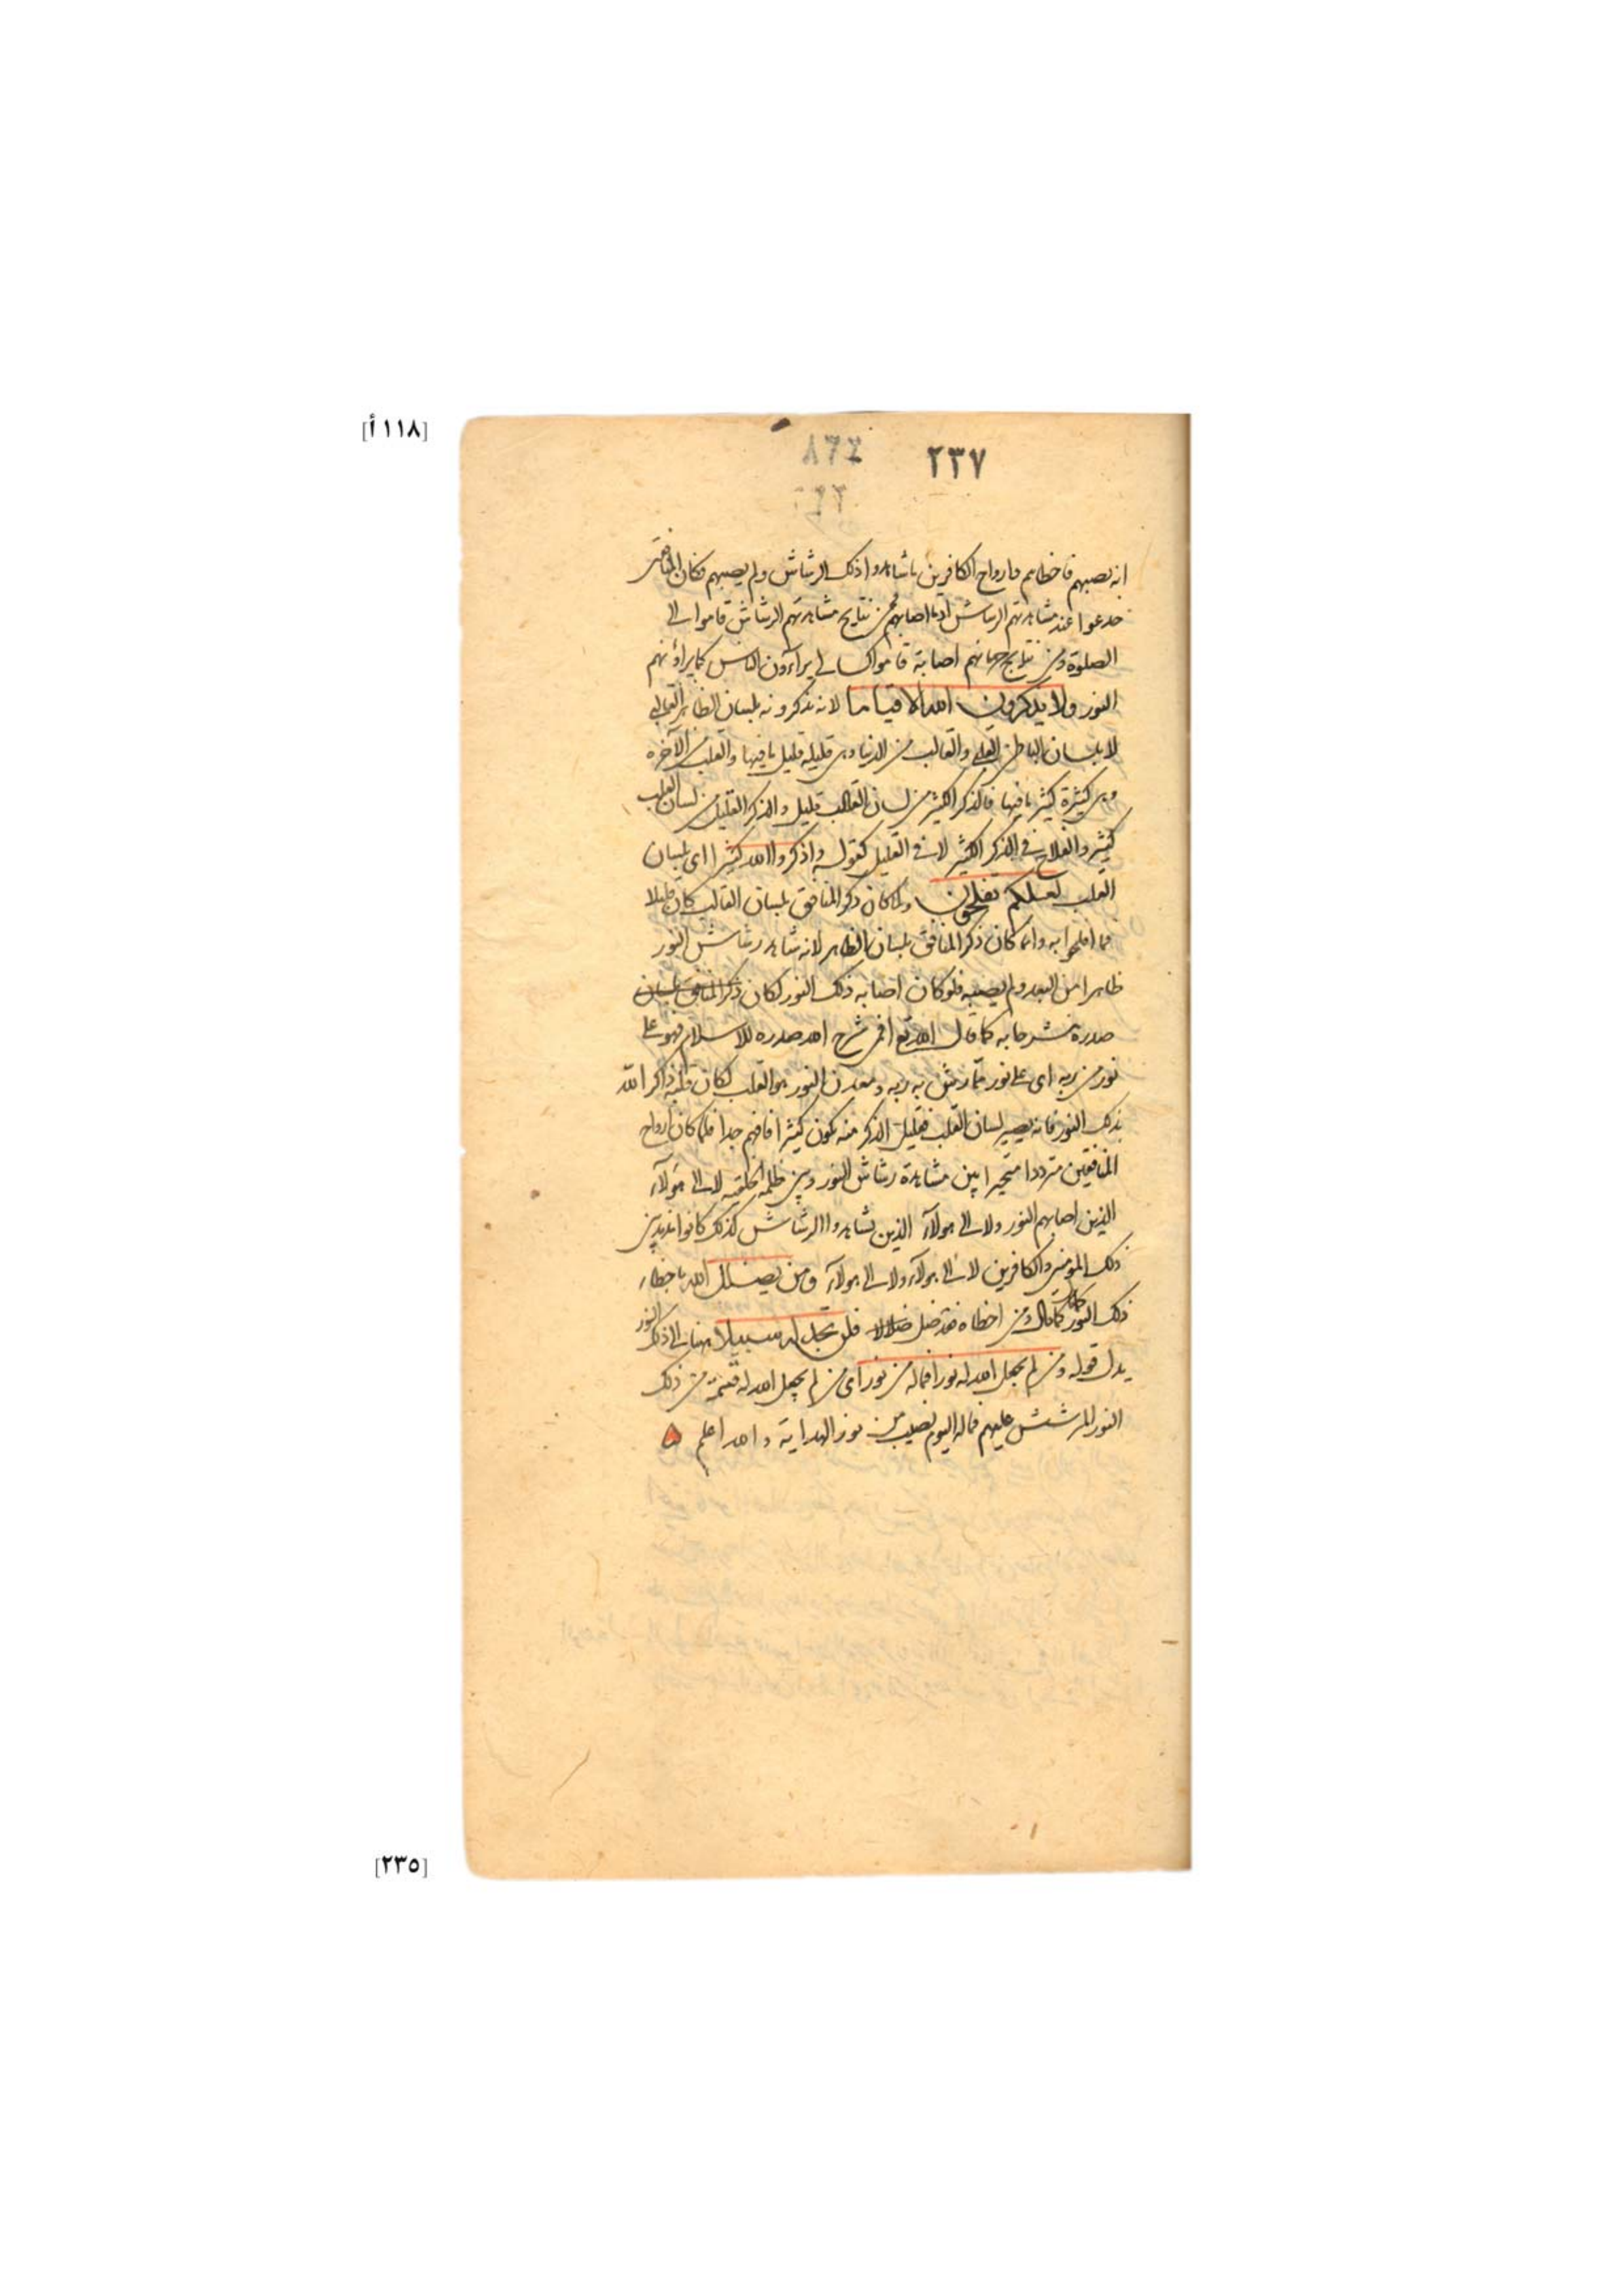 [١١٨ أ]
٢٣٧
انه يصيبهم فاخطاهم وارواح الكافرين ما شاهدوا ذلك الرشاش ولم يصيبهم فكان المنافقين
خدعوا عند مشاهدتهم الرشاش اذ ما اصابهم فمن نتايج مشاهدتهم الرشاش قاموا الى
الصلوة ومن نتايج حرمانهم اصابة قاموا كسالى يراؤن الناس كما يراؤنهم
النور ولا يذكرون الله الا قليلا لانه يذكرونه بلسان الظاهر القالبى
لا بلسان الباطن القلبى والقالب من الدنيا وهى قليلة قليل ما فيها والقلب من الآخرة
وهى كثيرة كثير ما فيها فالذكر الكثير من لسان القالب قليل والذكر القليل من لسان القلب
كثير والفلاح فى الذكر الكثير لا فى القليل كقوله واذكروا الله كثيرا اى بلسان
القلب لعلكم تفلحون ولما كان ذكر المنافق بلسان القالب كان قليلا
فما افلحوا به وانما كان ذكر المنافق بلسان الظاهر لانه شاهد رشاش النور
ظاهرا من البعد ولم يصيبه فلو كان اصابه ذلك النور لكان ذكر المنافق بلسان
صدره منشرحا به كما قال الله تع افمن شرح الله صدره للاسلام فهو على
نور من ربه اى على نور مما رش به ربه ومعدن النور هو القلب لكان قلبه ذاكرا لله
بذلك النور فانه يصير لسان القلب فقليل الذكر منه يكون كثيرا فافهم جدا فلما كان ارواح
المنافقين مترددا متحيرا بين مشاهدة رشاش النور وبين ظلمة الخلقية لا الى هؤلاء
الذين اصابهم النور ولا الى هؤلاء الذين شاهدوا الرشاش كذلك كانوا مذبذبين
ذلك المؤمنين والكافرين لا الى هؤلاء ولا الى هؤلاء ومن يضلل الله باخطاء
ذلك النور كما قال ومن اخطاه فقد ضل ضلالا فلن تجد له سبيلا ههنا الى ذلك النور
يدل قوله ومن لم يجعل الله له نورا فما له من نور اى من لم يجعل الله له قسمة من ذلك
النور المرشش عليهم فما له اليوم نصيب من نور الهداية والله اعلم
[٢٣٥]